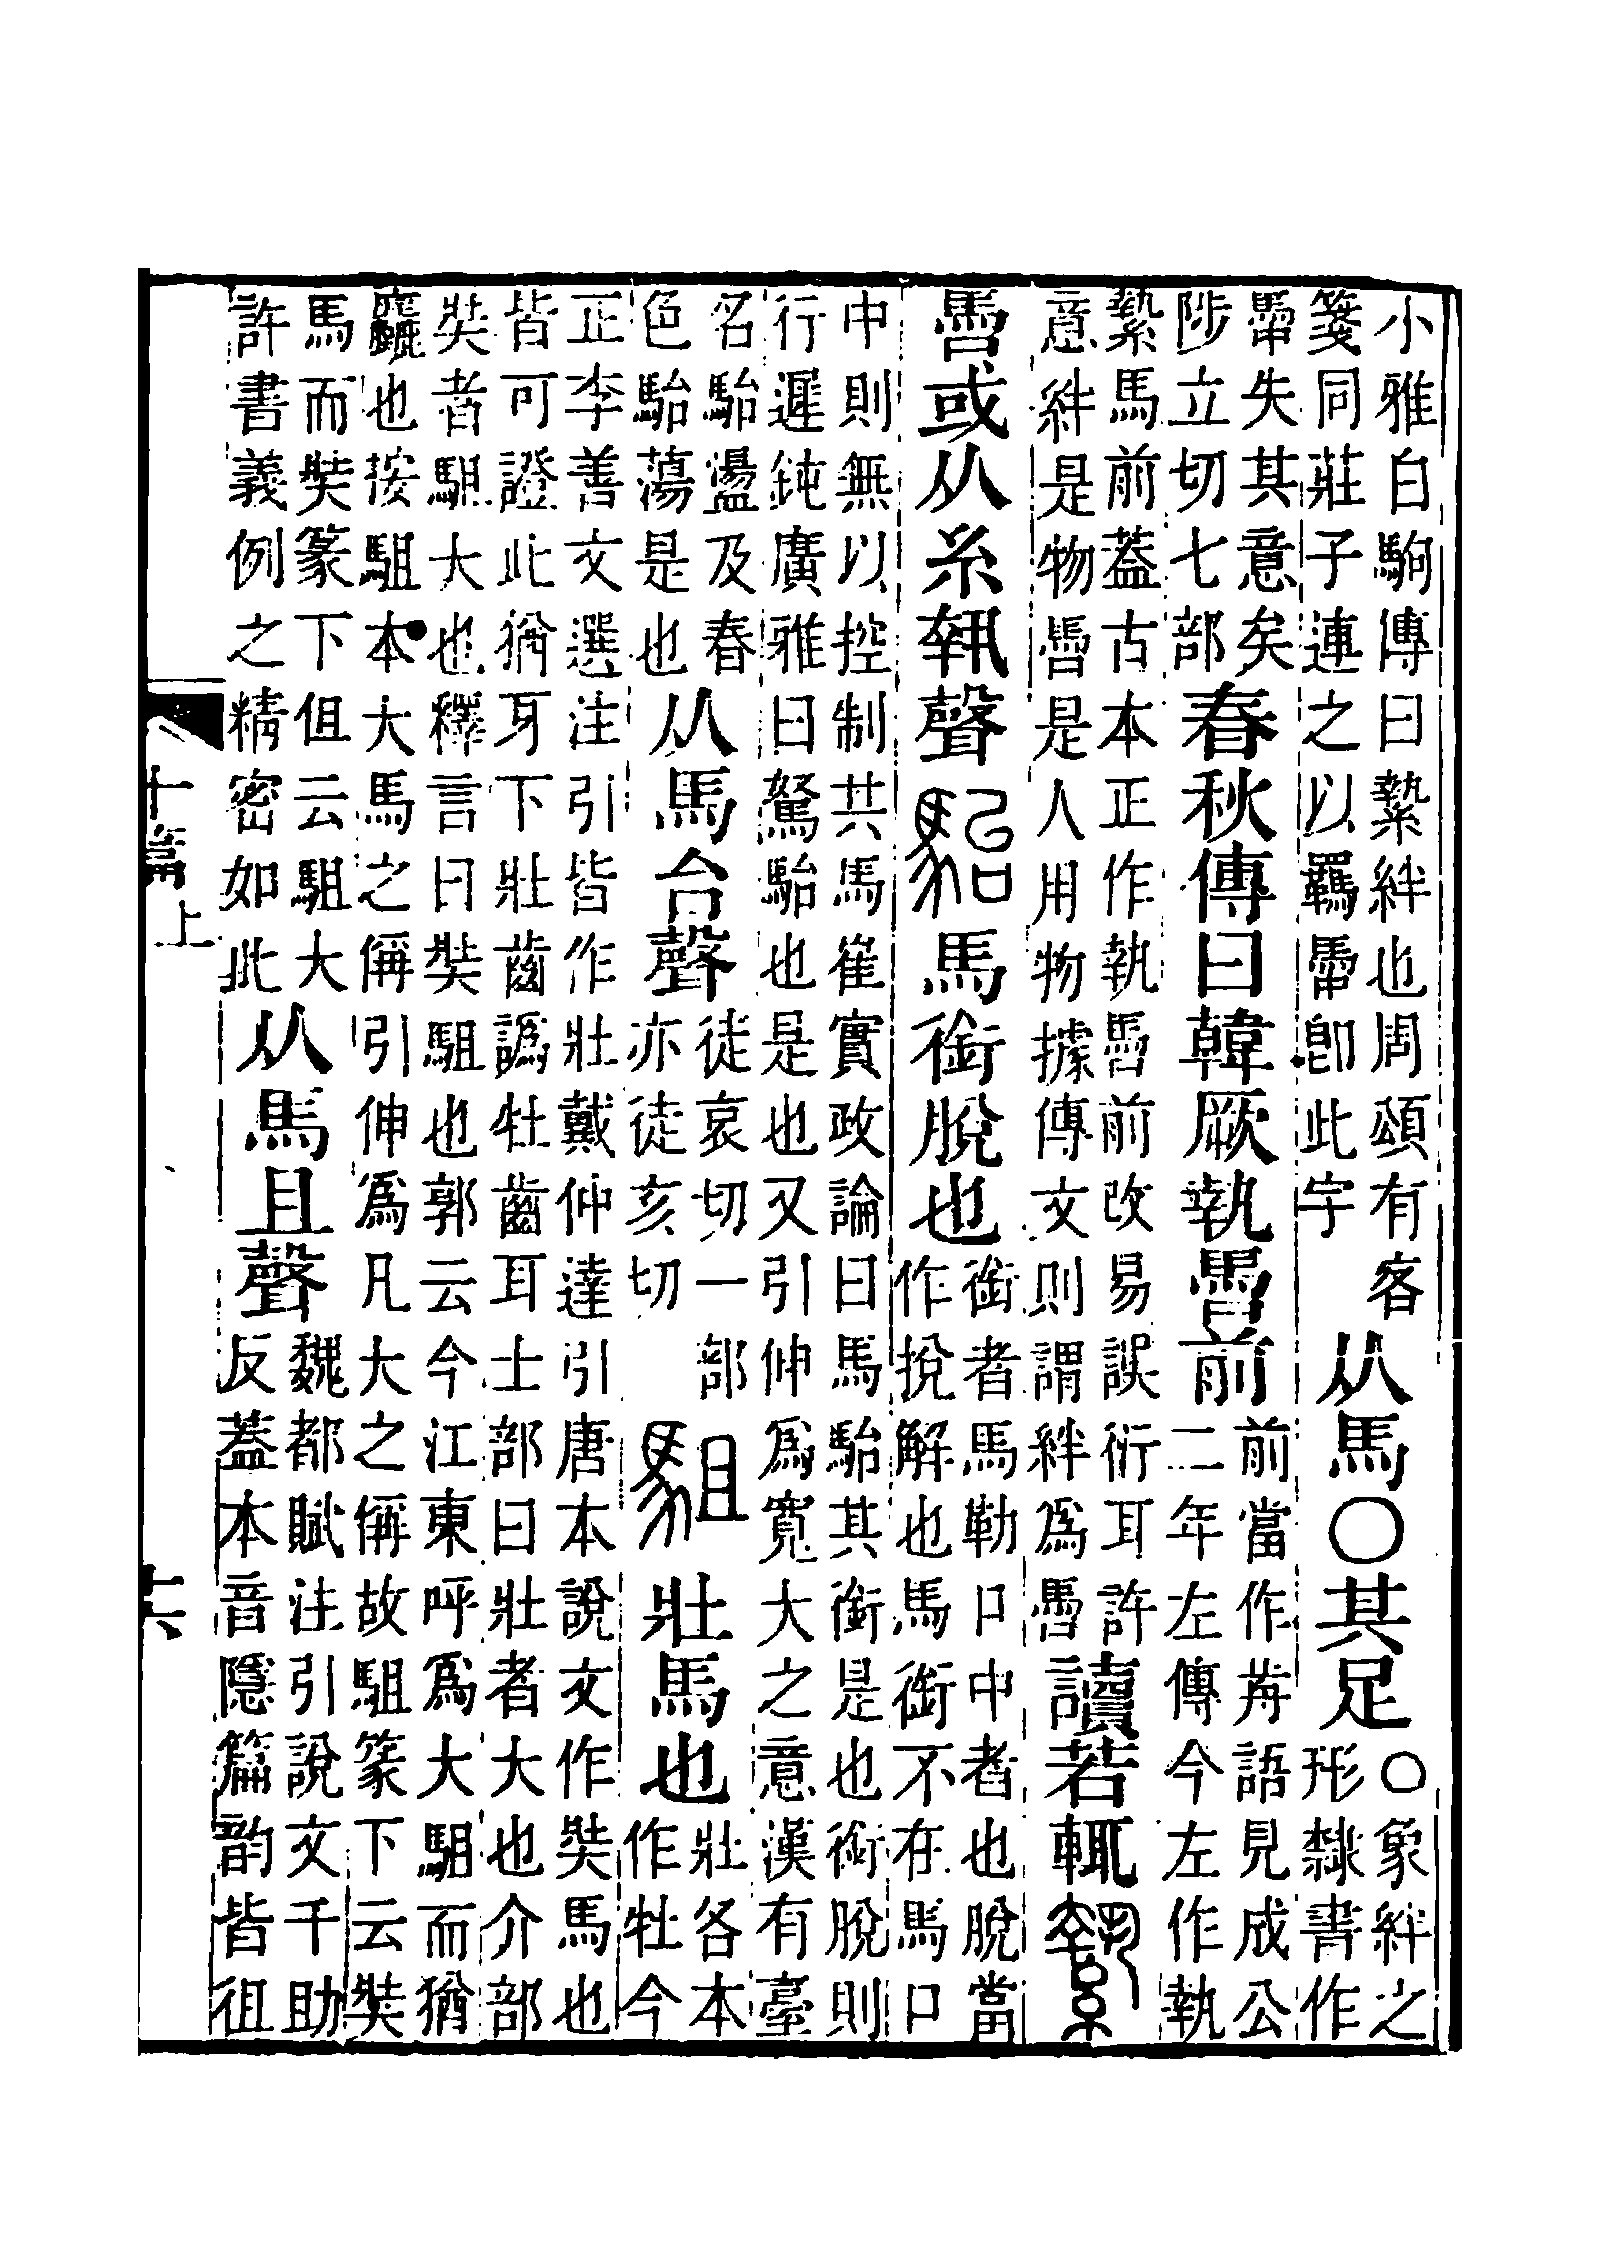 小雅白駒傳曰縶絆也周頌有客
箋同莊子連之以羈馽卽此字
从馬○其足
○象絆之
形隸書作
馽失其意矣
陟立切七部
春秋傳曰韓厥執馽前
前當作歬語見成公
二年左傳今左作執
縶馬前蓋古本正作執馽前改易誤衍耳許
意絆是物馽是人用物據傳文則謂絆爲馽
讀若輒
縶
馽或从糸執聲
駘
馬銜脫也
銜者馬勒口中者也脫當
作挩解也馬銜不在馬口
中則無以控制其馬崔實政論曰馬駘其銜是也銜脫則
行遲鈍廣雅曰駑駘也是也又引伸爲寬大之意漢有臺
名駘盪及春
色駘蕩是也
从馬台聲
徒哀切一部
亦徒亥切
駔
壯馬也
壯各本
作牡今
正李善文選注引皆作壯戴仲達引唐本說文作奘馬也
皆可證此猶牙下壯齒譌牡齒耳士部曰壯者大也介部
奘者駔大也釋言曰奘駔也郭云今江東呼爲大駔而猶
麤也按駔本大馬之偁引伸爲凡大之偁故駔篆下云奘
馬而奘篆下但云駔大
許書義例之精密如此
从馬且聲
魏都賦注引說文千助
反蓋本音隱篇韵皆徂
十篇上
十六